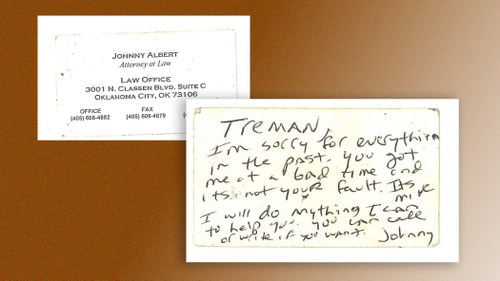 JOHNNY ALBERT
Attorney at Law
LAW OFFICE
3001 N. CLASSEN BLVD. SUITE C
OKLAHOMA CITY, OK 73106
OFFICE FAX
(405) 606-4882 (405) 606-4879
TREMAN,
I'm sorry for everything
in the past. you got
me at a bad time and
its not your fault. Its
mine
I will do anything I can
to help you. you can call
or write if you want. Johnny